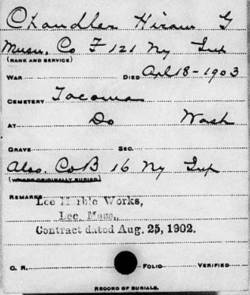 Chandler Hiram G
Musn. Co F 121 Ny Inf
(RANK AND SERVICE)
WAR DIED Apl 18-1903
CEMETERY Tacoma
AT Do Wash
GRAVE SEC.
Also. Co B 16 Ny Inf
(WHERE ORIGINALLY BURIED)
REMARKS Lee Marble Works,
Lee, Mass.,
Contract dated Aug. 25, 1902.
G. R. FOLIO VERIFIED
RECORD OF BURIALS.